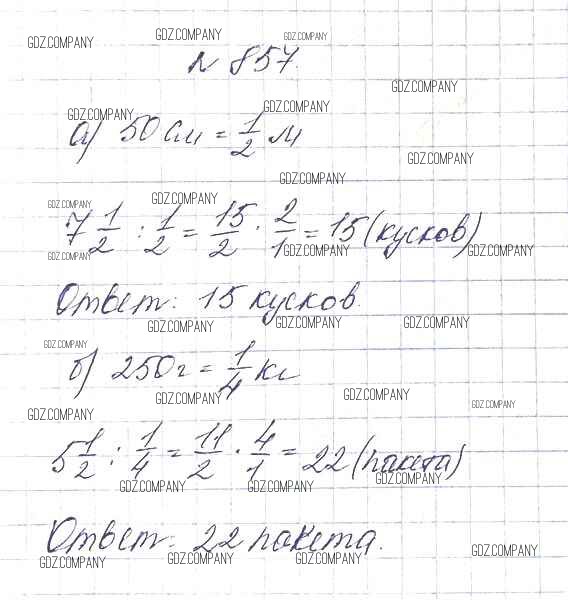 GDZ.COMPANY GDZ.COMPANY GDZ.COMPANY
№ 857.
GDZ.COMPANY
GDZ.COMPANY GDZ.COMPANY
а) 50 см = 1/2 м
GDZ.COMPANY
GDZ.COMPANY
GDZ.COMPANY GDZ.COMPANY
7 1/2 : 1/2 = 15/2 · 2/1 = 15 (кусков)
GDZ.COMPANY GDZ.COMPANY GDZ.COMPANY
Ответ: 15 кусков.
GDZ.COMPANY GDZ.COMPANY GDZ.COMPANY
GDZ.COMPANY
б) 250 г = 1/4 кг
GDZ.COMPANY GDZ.COMPANY
GDZ.COMPANY GDZ.COMPANY
5 1/2 : 1/4 = 11/2 · 4/1 = 22 (пакета)
GDZ.COMPANY GDZ.COMPANY GDZ.COMPANY
Ответ: 22 пакета.
GDZ.COMPANY GDZ.COMPANY GDZ.COMPANY GDZ.COMPANY